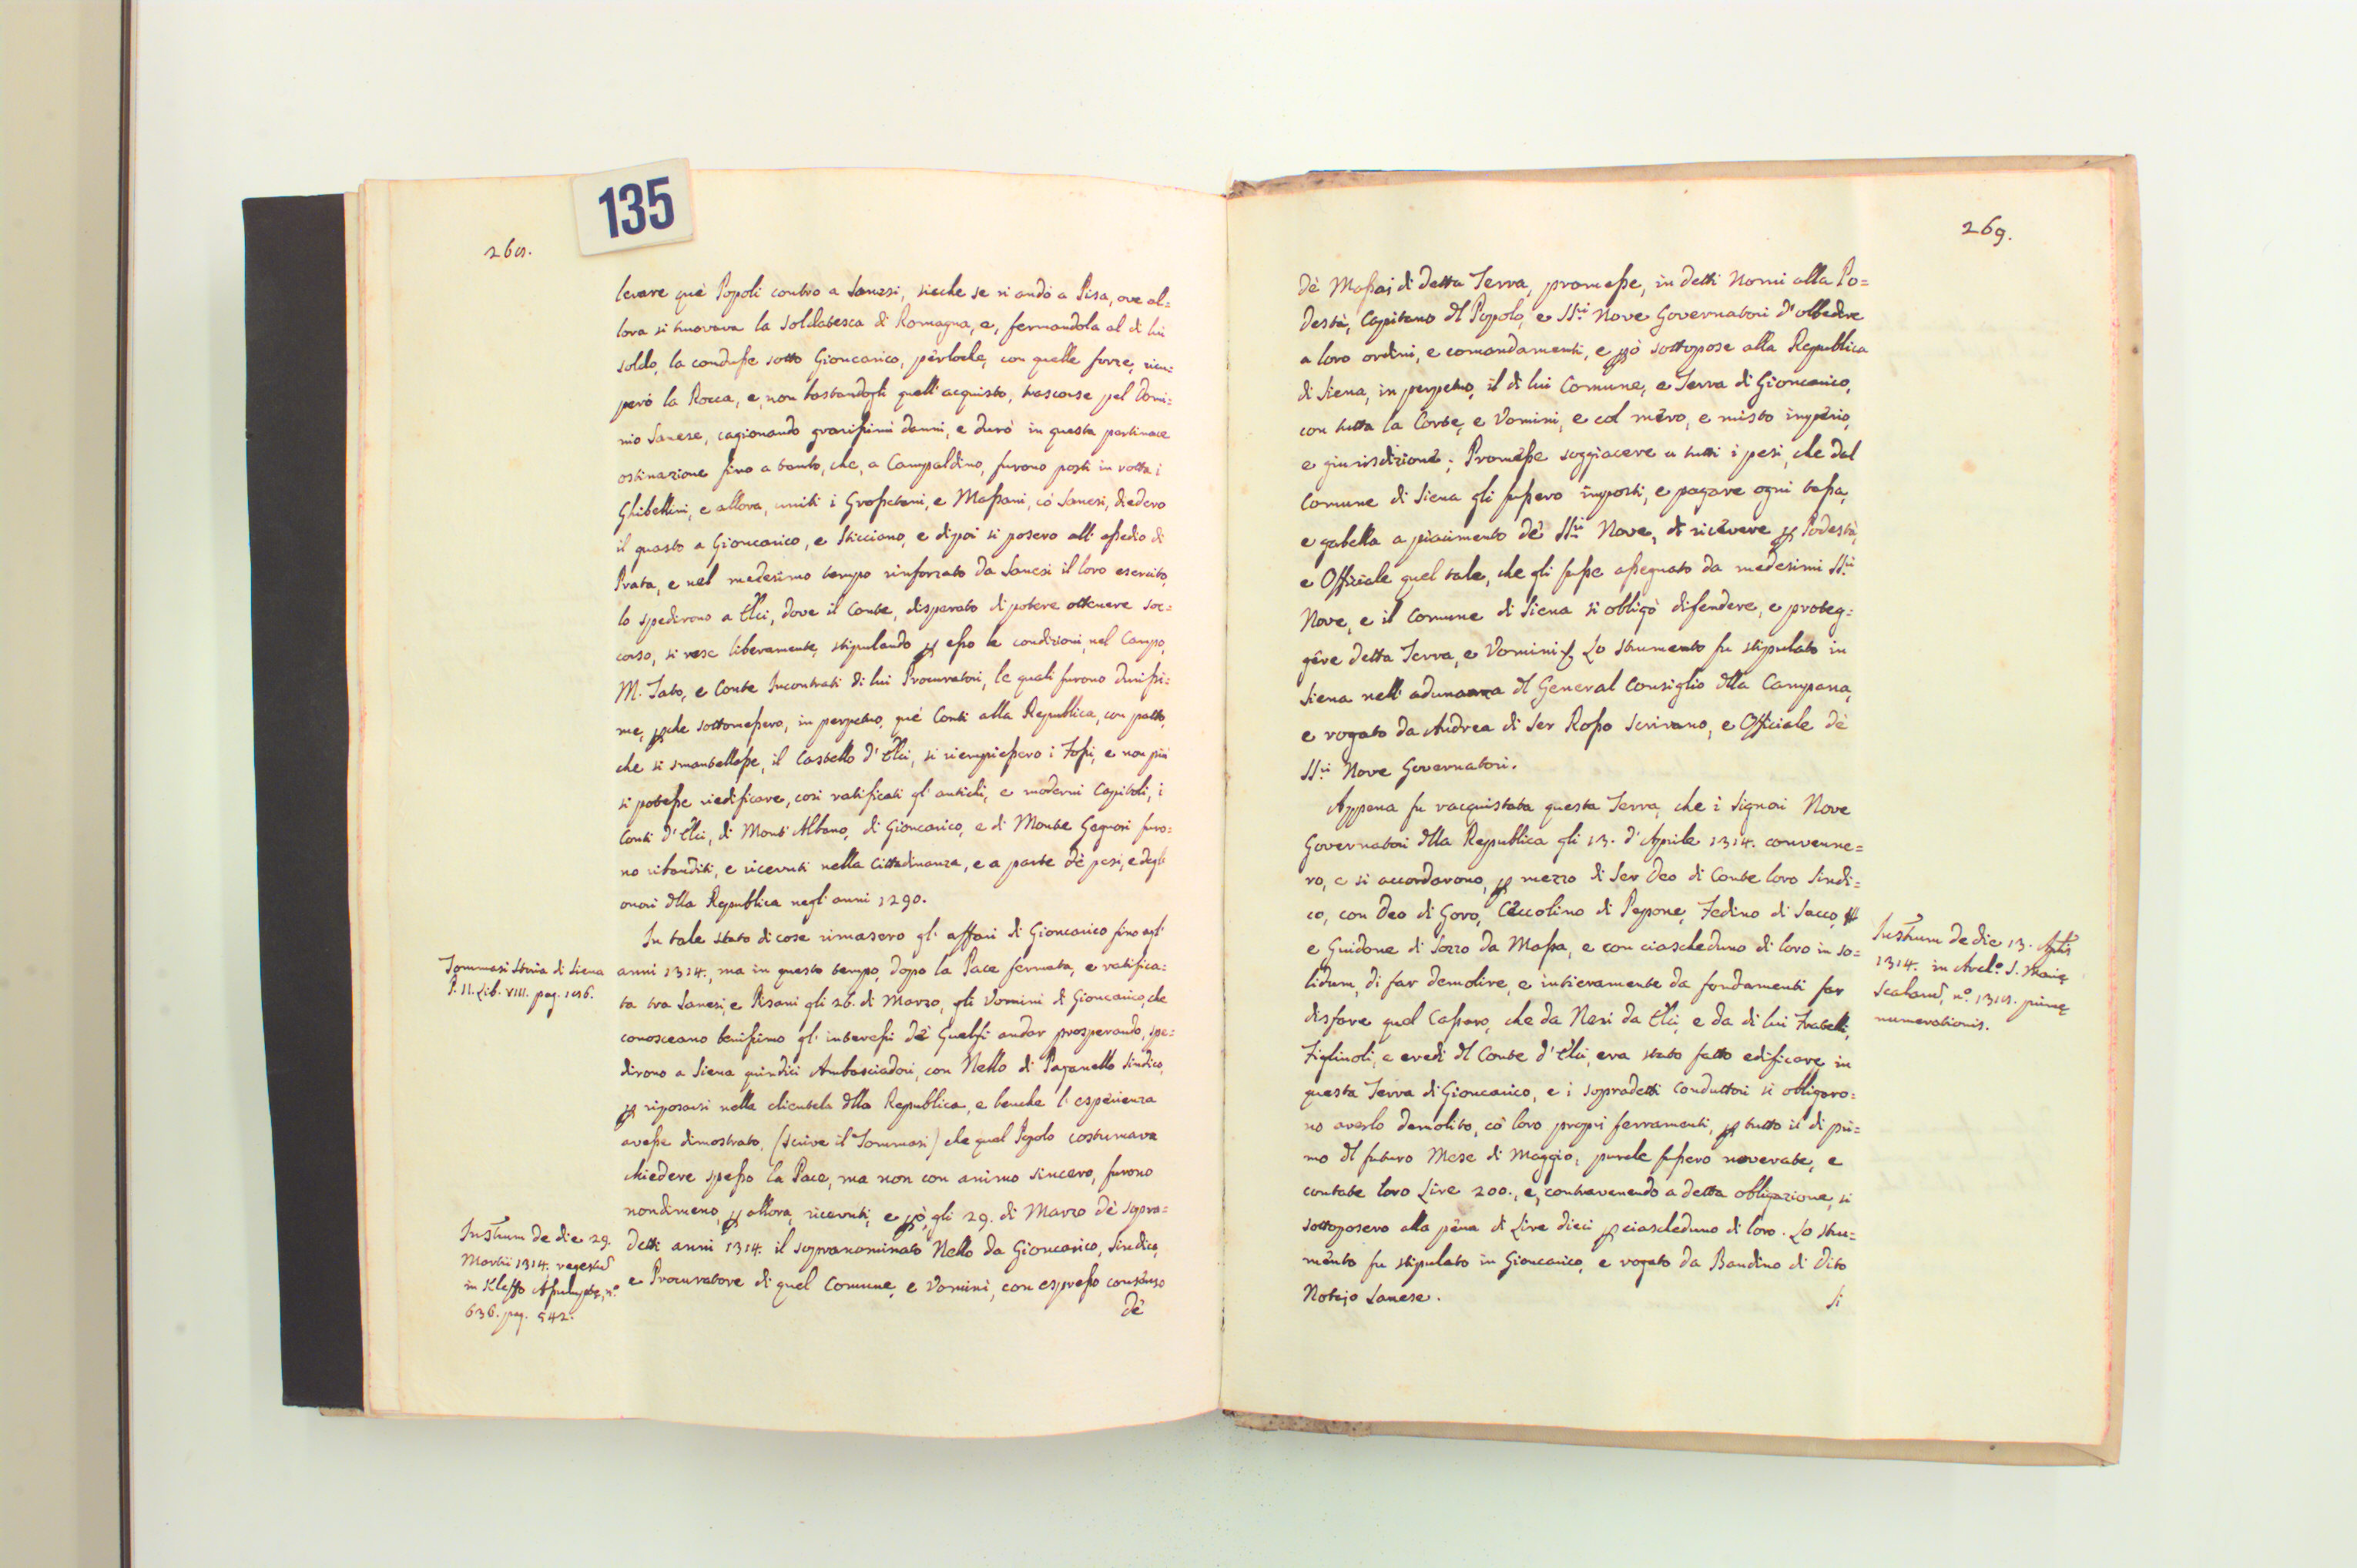 135
268.
levare què Popoli contro a Sanesi, sicche se ni andò a Pisa, ove al=
lora si truovava la soldatesca di Romagna, e, fermandola al di lui
soldo, la condusse sotto Gioncarico, perloche, con quelle forze, ricu=
però la Rocca, e, non bastandogli quell'acquisto, trascorse pel Domi=
nio Sanese, cagionando gravissimi danni, e durò in questa pertinace
ostinazione fino a tanto, che, a Campaldino, furono posti in rotta i
Ghibellini, e allora, uniti i Grossetani, e Massani, cò Sanesi, diedero
il guasto a Gioncarico, e Sticciano, e dipoi si posero all'assedio di
Prata, e nel medesimo tempo rinforzato da Sanesi il loro esercito,
lo spedirono a Elci, dove il Conte, disperato di potere ottenere soc=
corso, si rese liberamente, stipulando p esso le condizioni, nel Campo,
M. Tato, e Conte Incontrati di lui Procuratori, le quali furono durissi=
me, pche sottomessero, in perpetuo, què Conti alla Republica, con patto,
che si smantellasse, il Castello d'Elci, si riempiessero i Fossi, e non più
si potesse riedificare, così ratificati gl'antichi, e moderni Capitoli, i
Conti d'Elci, di Mont'Albano, di Gioncarico, e di Monte Gagnori furo=
no ribanditi, e ricevuti nella Cittadinanza, e a parte dè pesi, e degli
onori dlla Republica negl'anni 1290.
In tale stato di cose rimasero gl'affari di Gioncarico fino agl'
Tommasi Storia di Siena
P. II. Lib. VIII. pag. 186.
anni 1314., ma in questo tempo, dopo la Pace fermata, e ratifica=
ta tra Sanesi, e Pisani gli 26. di Marzo, gli Vomini di Gioncarico, che
conosceano benissimo gl'interessi dè Guelfi andar prosperando, spe=
dirono a Siena quindici Ambasciadori, con Nello di Paganello Sindico,
p riposarsi nella clientela dlla Republica, e benche l'esperienza
avesse dimostrato, (scrive il Tommasi) che quel Popolo costumava
chiedere spesso la Pace, ma non con animo sincero, furono
nondimeno, p allora, ricevuti, e pò, gli 29. di Marzo dè sopra=
Instrum de die 29.
Martii 1314. regestus
in Kleffo Assumptę, n.º
636. pag. 542.
detti anni 1314. il sopranominato Nello da Gioncarico, Sindico,
e Procuratore di quel Comune, e Vomini, con espresso consenso
dè
269.
dè Massaj di detta Terra, promesse, in detti Nomi alla Po=
destà, Capitano dl Popolo, e SS.ri Nove Governatori d'obbedire
a loro ordini, e comandamenti, e pò sottopose alla Republica
di Siena, in perpetuo, il di lui Comune, e Terra di Gioncarico,
con tutta la Corte, e Vomini, e col mero, e misto imperio,
e giurisdizione; Promesse soggiacere a tutti i pesi, che dal
Comune di Siena gli fussero imposti, e pagare ogni tassa,
e gabella a piacimento dè SS.ri Nove, di ricevere p Podestà,
e Offiziale quel tale, che gli fusse assegnato da medesimi SS.ri
Nove, e il Comune di Siena si obligò difendere, e proteg=
gere detta Terra, e Vomini. Lo Strumento fu stipulato in
Siena nell'adunanza dl General Consiglio dlla Campana,
e rogato da Andrea di Ser Rosso Scrivano, e Officiale dè
SS.ri Nove Governatori.
Appena fu racquistata questa Terra, che i Signori Nove
Governatori dlla Republica gli 13. d'Aprile 1314. convenne=
ro, e si accordarono, p mezzo di Ser Deo di Conte loro Sindi=
co, con Deo di Goro, Ceccolino di Pepone, Fedino di Sacco,
Instrum de die 13. Aplis
1314. in Arch.º S. Marię
Scalaru, n.º 1318. primę
numerationis.
e Guidone di Sozzo da Massa, e con ciascheduno di loro in so=
lidum, di far demolire, e intieramente da fondamenti far
disfare quel Cassaro, che da Neri da Elci, e da di lui Fratelli,
Figliuoli, e eredi dl Conte d'Elci, era stato fatto edificare in
questa Terra di Gioncarico, e i sopradetti Conduttori si obligaro=
no averlo demolito, cò loro propri ferramenti, p tutto il dì pri=
mo dl futuro Mese di Maggio, purche fussero noverate, e
contate loro Lire 200., e, contravenendo a detta obligazione, si
sottoposero alla pena di Lire dieci p ciascheduno di loro. Lo Stru=
mento fu stipulato in Gioncarico, e rogato da Bandino di Dito
Notajo Sanese.
Si